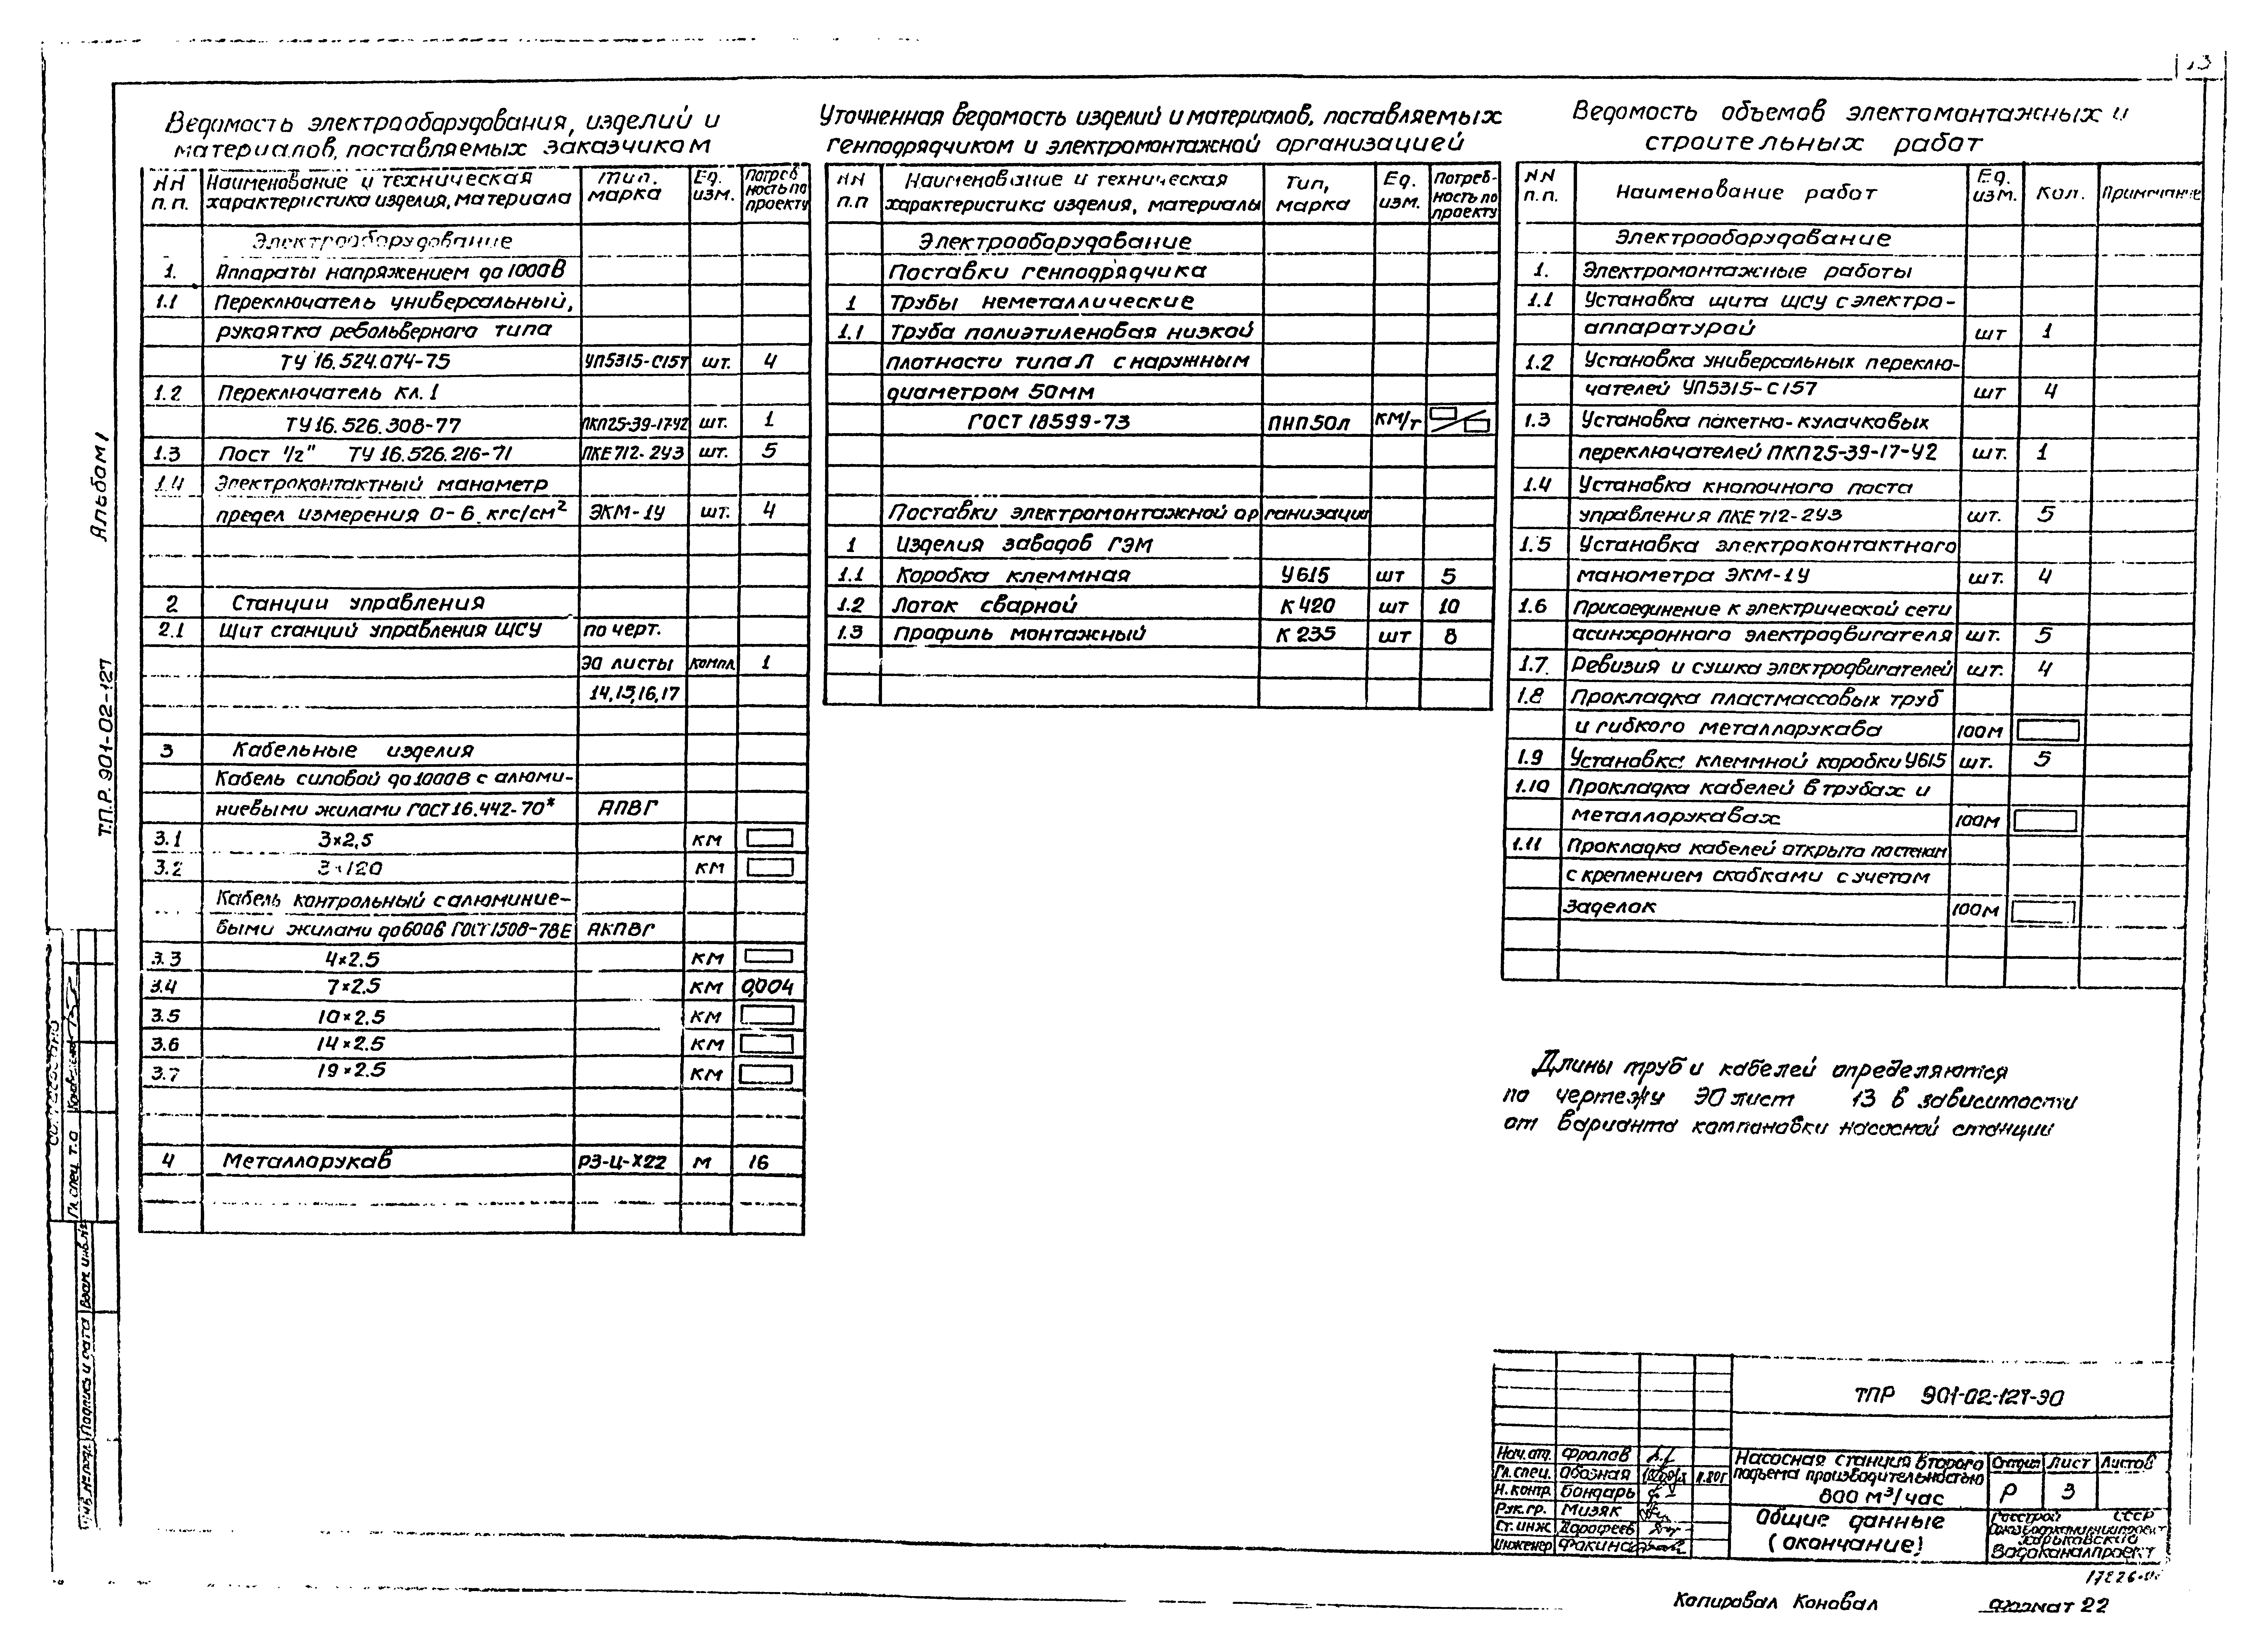 Ведомость электрооборудования, изделий и
материалов, поставляемых заказчиком
NN п.п. Наименование и техническая характеристика изделия, материала Тип, марка Ед. изм. Потреб ность по проекту
Электрооборудование
1. Аппараты напряжением до 1000В
1.1 Переключатель универсальный,
рукоятка револьверного типа
ТУ 16.524.074-75 УП5315-С157 шт. 4
1.2 Переключатель кл. 1
ТУ 16.526.308-77 ПКП25-39-17-У2 шт. 1
1.3 Пост "1/2" ТУ 16.526.216-71 ПКЕ 712-2У3 шт. 5
1.4 Электроконтактный манометр
предел измерения 0-6 кгс/см² ЭКМ-1У шт. 4
2 Станции управления
2.1 Щит станций управления ЩСУ по черт.
ЭО листы компл. 1
14,15,16,17
3 Кабельные изделия
Кабель силовой до 1000В с алюми-
ниевыми жилами ГОСТ 16.442-70* АПВГ
3.1 3×2,5 км
3.2 3×120 км
Кабель контрольный с алюминие-
выми жилами до 600В ГОСТ 1508-78Е АКПВГ
3.3 4×2.5 км
3.4 7×2.5 км 0,004
3.5 10×2.5 км
3.6 14×2.5 км
3.7 19×2.5 км
4 Металлорукав РЗ-Ц-Х22 м 16
Уточненная ведомость изделий и материалов, поставляемых
генподрядчиком и электромонтажной организацией
NN п.п Наименование и техническая характеристика изделия, материалы Тип, марка Ед. изм. Потреб-ность по проекту
Электрооборудование
Поставки генподрядчика
1 Трубы неметаллические
1.1 Труба полиэтиленовая низкой
плотности типа Л с наружным
диаметром 50мм
ГОСТ 18599-73 ПНП 50Л км/т
Поставки электромонтажной организации
1 Изделия заводов ГЭМ
1.1 Коробка клеммная У615 шт 5
1.2 Лоток сварной К 420 шт 10
1.3 Профиль монтажный К 235 шт 8
Ведомость объемов электомонтажных и
строительных работ
NN п.п. Наименование работ Ед. изм. Кол. Примечание
Электрооборудование
1. Электромонтажные работы
1.1 Установка щита ЩСУ с электро-
аппаратурой шт 1
1.2 Установка универсальных переклю-
чателей УП5315-С157 шт 4
1.3 Установка пакетно-кулачковых
переключателей ПКП25-39-17-У2 шт. 1
1.4 Установка кнопочного поста
управления ПКЕ 712-2У3 шт. 5
1.5 Установка электроконтактного
манометра ЭКМ-1У шт. 4
1.6 Присоединение к электрической сети
асинхронного электродвигателя шт. 5
1.7. Ревизия и сушка электродвигателей шт. 4
1.8 Прокладка пластмассовых труб
и гибкого металлорукава 100м
1.9 Установка клеммной коробки У615 шт. 5
1.10 Прокладка кабелей в трубах и
металлорукавах 100м
1.11 Прокладка кабелей открыто по стенам
с креплением скобками с учетом
заделок 100м
Длины труб и кабелей определяются
по чертежу ЭО лист 13 в зависимости
от варианта компановки насосной станции
Альбом I
Т.П.Р. 901-02-127
Гл. спец. т.о
Инв. № подл. Подпись и дата Взам. инв. №
ТПР 901-02-127-ЭО
Нач. отд. Фролов
Гл. спец. Обозная
Н. контр. Бондарь
Рук. гр. Мизяк
Ст. инж. Дорофеев
Инженер Фокина
Насосная станция второго
подъема производительностью
800 м³/час
Стадия Лист Листов
Р 3
Общие данные
(окончание)
Госстрой СССР
Союзводоканалниипроект
Харьковский
Водоканалпроект
Копировал Коновал
Формат 22